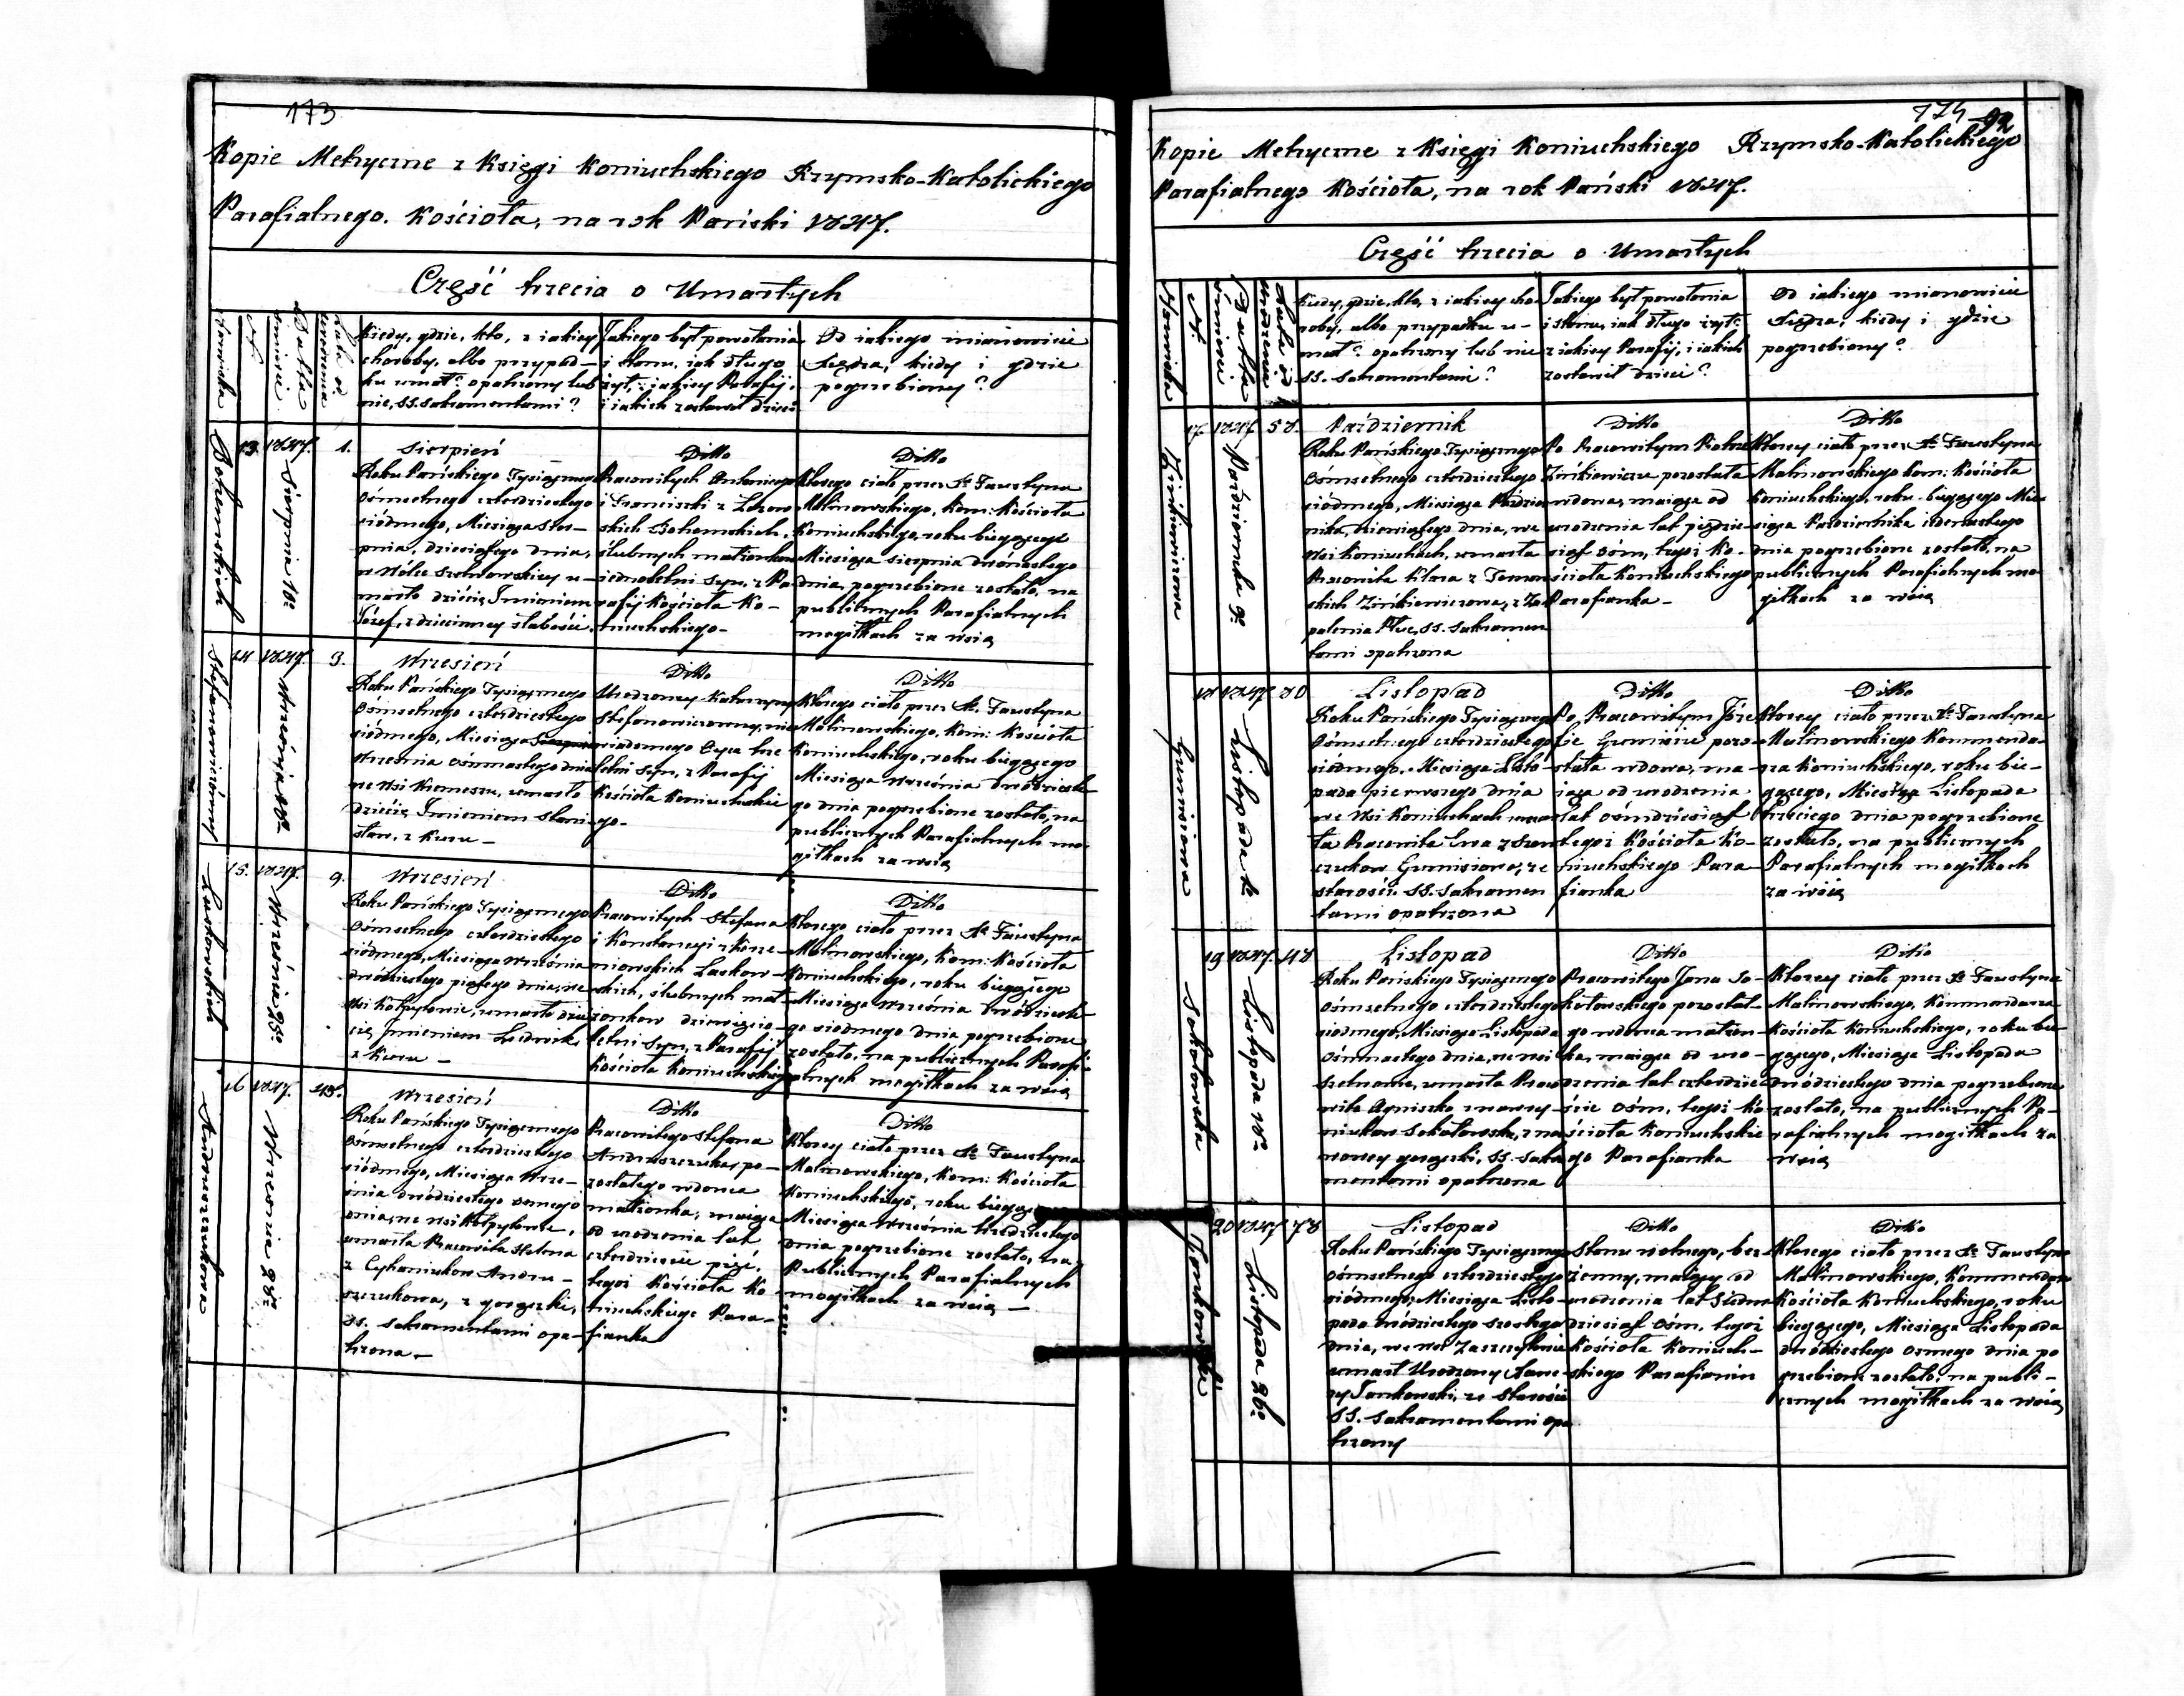 173
Kopie Metryczne z Księgi Koniuchskiego Rzymsko-Katolickiego
Parafialnego Kościoła, na rok Pański 1847.
Część trzecia o Umarłych
Nazwisko
№
Data śmierci
Lata od urodzenia
Kiedy, gdzie, kto, z iakiey
choroby, albo przypad-
ku umarł? opatrzony lub
nie, SS. Sakramentami?
Jakiego był powołania
i stanu, iak długo
żył, z iakiey Parafij,
i iakich zostawił dzieci
Od iakiego mianowicie
Xiędza, kiedy i gdzie
pogrzebiony?
Bohemskich
13. 1847. Sierpnia 10º
1.
Sierpień
Roku Pańskiego Tysiącznego
Ośmsetnego czterdziestego
siódmego, Miesiąca Sier-
pnia, dziesiątego dnia,
w Wólce Szelwowskiey u-
marło dziécię Imieniem
Józef, z dziecinney słabości.
Ditto
Pracowitych Antoniego
i Franciszki z Lozow-
skich Bohemskich,
ślubnych małżonkow
iednoletni syn, z Pa-
rafij Kościoła Ko-
niuchskiego-
Ditto
Którego ciało przez Xª Faustyna
Malinowskiego, Kom: Kościoła
Koniuchskiego, roku biegącego
Miesiąca Sierpnia dwónastego
dnia, pogrzebione zostało, na
publicznych Parafialnych
mogiłkach za wsią
Stefanowiczowny
14 1847. Września 18º
3.
Wrzesień
Roku Pańskiego Tysiącznego
Ośmsetnego czterdziestego
siódmego, Miesiąca Sierpnia
Września ośmnastego dnia
we Wsi Kremeszu, umarło
dziécię Imieniem Stani-
sław, z Kuru-
Ditto
Urodzoney Katarzyny
Stefanowiczowny, nie
wiadomego Oyca trze
letni syn, z Parafij
Kościoła Koniuchskie
go-
Ditto
Którego ciało przez Xª Faustyna
Malinowskiego, Kom: Kościoła
Koniuchskiego, roku biegącego
Miesiąca Września dwódzieste-
go dnia pogrzebione zostało, na
publicznych Parafialnych mo-
giłkach za wsią
Laskowskich
15. 1847. Września 25º
9.
Wrzesień
Roku Pańskiego Tysiącznego
Ośmsetnego czterdziestego
siódmego, Miesiąca Września
dwódziestego piątego dnia, we
Wsi Kołpytowie, umarło dzie
cię Imieniem Ludwik
z Kuru-
Ditto
Pracowitych Stefana
i Konstancyi z Korze-
niowskich Laskow-
skich, ślubnych mał-
żonkow dziewięcio-
letni syn, z Parafij
Kościoła Koniuchskiego
Ditto
Którego ciało przez Xª Faustyna
Malinowskiego, Kom: Kościoła
Koniuchskiego, roku biegącego
Miesiąca Września dwódzieste-
go siódmego dnia pogrzebione
zostało, na publicznych Parafi-
alnych mogiłkach za wsią
Andruszczukowa
16 1847. Września 28º
45.
Wrzesień
Roku Pańskiego Tysiącznego
Ośmsetnego czterdziestego
siódmego, Miesiąca Wrze-
śnia dwódziestego osmego
dnia, we Wsi Kołpytowie,
umarła Pracowita Helena
z Cyhaniukow Andru-
szczukowa, z gorączki,
SS. Sakramentami opa-
trzona-
Ditto
Pracowitego Stefana
Andruszczuka, po-
zostałego wdowca
małżonka, maiąca
od urodzenia lat
czterdzieści pięć,
tegoż Kościoła Ko
niuchskiego Para-
fianka
Ditto
Którey ciało przez Xª Faustyna
Malinowskiego, Kom: Kościoła
Koniuchskiego, roku biegącego
Miesiąca Września trzydziestego
dnia pogrzebione zostało, na
Publicznych Parafialnych
mogiłkach za wsią-
174
92
Kopie Metryczne z Księgi Koniuchskiego Rzymsko-Katolickiego
Parafialnego Kościoła, na rok Pański 1847.
Część trzecia o Umarłych
Nazwisko
№
Data śmierci
Lata od urodzenia
Kiedy, gdzie, kto, z iakiey cho-
roby, albo przypadku u-
marł? opatrzony lub nie
SS. Sakramentami?
Jakiego był powołania
i stanu, iak długo żył?
z iakiey Parafij, i iakich
zostawił dzieci?
Od iakiego mianowicie
Xiędza, kiedy i gdzie
pogrzebiony?
Zińkiewiczowa
17 1847 Pażdziernika 9º
58.
Paździérnik
Roku Pańskiego Tysiącznego
Ośmsetnego czterdziestego
siódmego, Miesiąca Pażdzier
nika, dziewiątego dnia, we
Wsi Koniuchach, umarła
Pracowita
skich Zińkiewiczowa, z Za
palenia Płuc, SS. Sakramen
tami opatrzona
Ditto
Po Pracowitym Piotrze
Zińkiewiczu pozostała
wdowa, maiąca od
urodzenia lat pięćdzie-
siąt ośm, tegoż Ko-
ścioła Koniuchskiego
Parafianka-
Ditto
Którey ciało przez Xª Faustyna
Malinowskiego Kom: Kościoła
Koniuchskiego, roku biegącego Mie
siąca Pażdziernika iedenastego
dnia pogrzebione zostało, na
publicznych Parafialnych mo-
giłkach za wsią
18 1847 Listopada 1º
80
Listopad
Roku Pańskiego Tysiącznego
Ośmsetnego czterdziestego
siódmego, Miesiąca Listo-
pada pierwszego dnia
we Wsi Koniuchach umar
ła Pracowita Ewa z Szew
czukow
starości SS. Sakramen
tami opatrzona
Ditto
Po Pracowitym Józe
fie pozo-
stała wdowa, ma-
iąca od urodzenia
lat ośmdziesiąt
tegoż Kościoła Ko-
niuchskiego Para
fianka
Ditto
Którey ciało przez Xª Faustyna
Malinowskiego Kommenda-
rza Koniuchskiego, roku bie-
gącego, Miesiąca Listopada
trzéciego dnia pogrzebione
zostało, na publicznych
Parafialnych mogiłkach
za wsią
Sokołowska
19 1847. Listopada 18º
48
Listopad
Roku Pańskiego Tysiącznego
Ośmsetnego czterdziestego
siódmego, Miesiąca Listopada
Ośmnastego dnia, we wsi
Szelwowie, umarła Praco
wita Agnieszka z
Sokołowska,
gorączki, SS. Sakra
mentami opatrzona
Ditto
Pracowitego Jana So-
kołowskiego pozostał-
go wdowca małżon
ka, maiąca od uro-
dzenia lat czterdzie-
ście ośm, tegoż Ko
ścioła Koniuchskie
go Parafianka
Ditto
Którey ciało przez Xª Faustyna
Malinowskiego, Kommendarza
Kościoła Koniuchskiego, roku bie
gącego, Miesiąca Listopada
dwódziestego dnia pogrzebione
zostało, na publicznych Pa-
rafialnych mogiłkach za
wsią
Jankowski
20 1847 Listopada 26º
78
Listopad
Roku Pańskiego Tysiącznego
Ośmsetnego czterdziestego
siódmego, Miesiąca Listo-
pada dwódziestego szostego
dnia, we Wsi
umarł Urodzony
Jankowski, ze starości
SS. Sakramentami opa
trzony
Ditto
Stanu wolnego, bez
żenny, maiący od
urodzenia lat Siedm
dziesiąt Ośm, tegoż
Kościoła Koniuch-
skiego Parafianin
Ditto
Którego ciało przez Xª Faustyna
Malinowskiego, Kommendarza
Kościoła Koniuchskiego, roku
biegącego, Miesiąca Listopada
dwódziestego osmego dnia po
grzebione zostało, na publi-
cznych mogiłkach za wsią